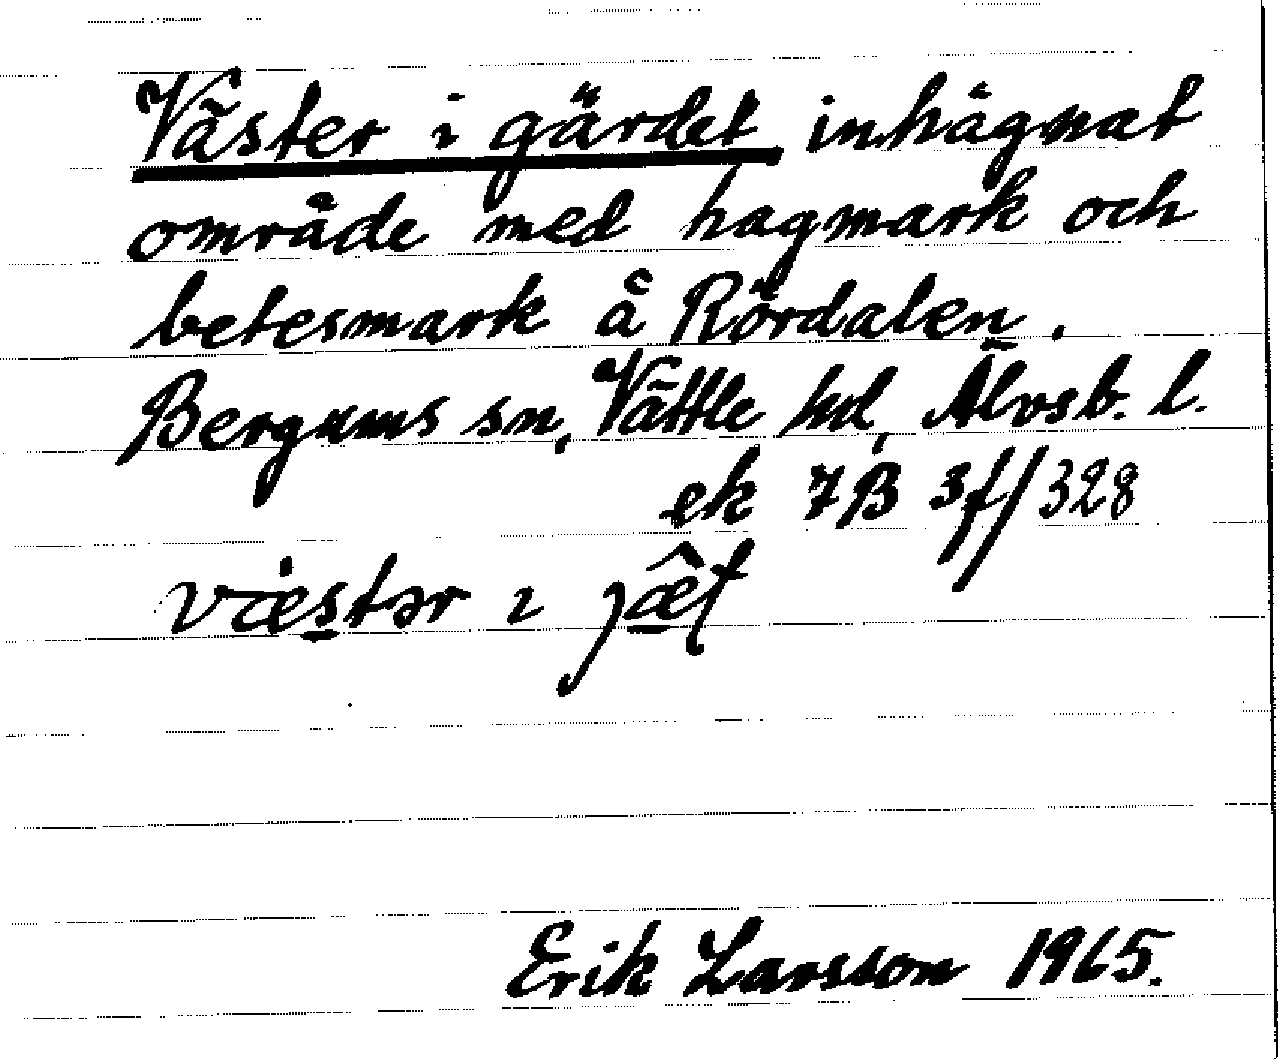 Väster i gärdet, inhägnat
område med hagmark och
betesmark å Rördalen.
Bergums sn, Vättle hd, Älvsb. l.
ek 7B 3f/328
væstər ɩ
Erik Larsson 1965.